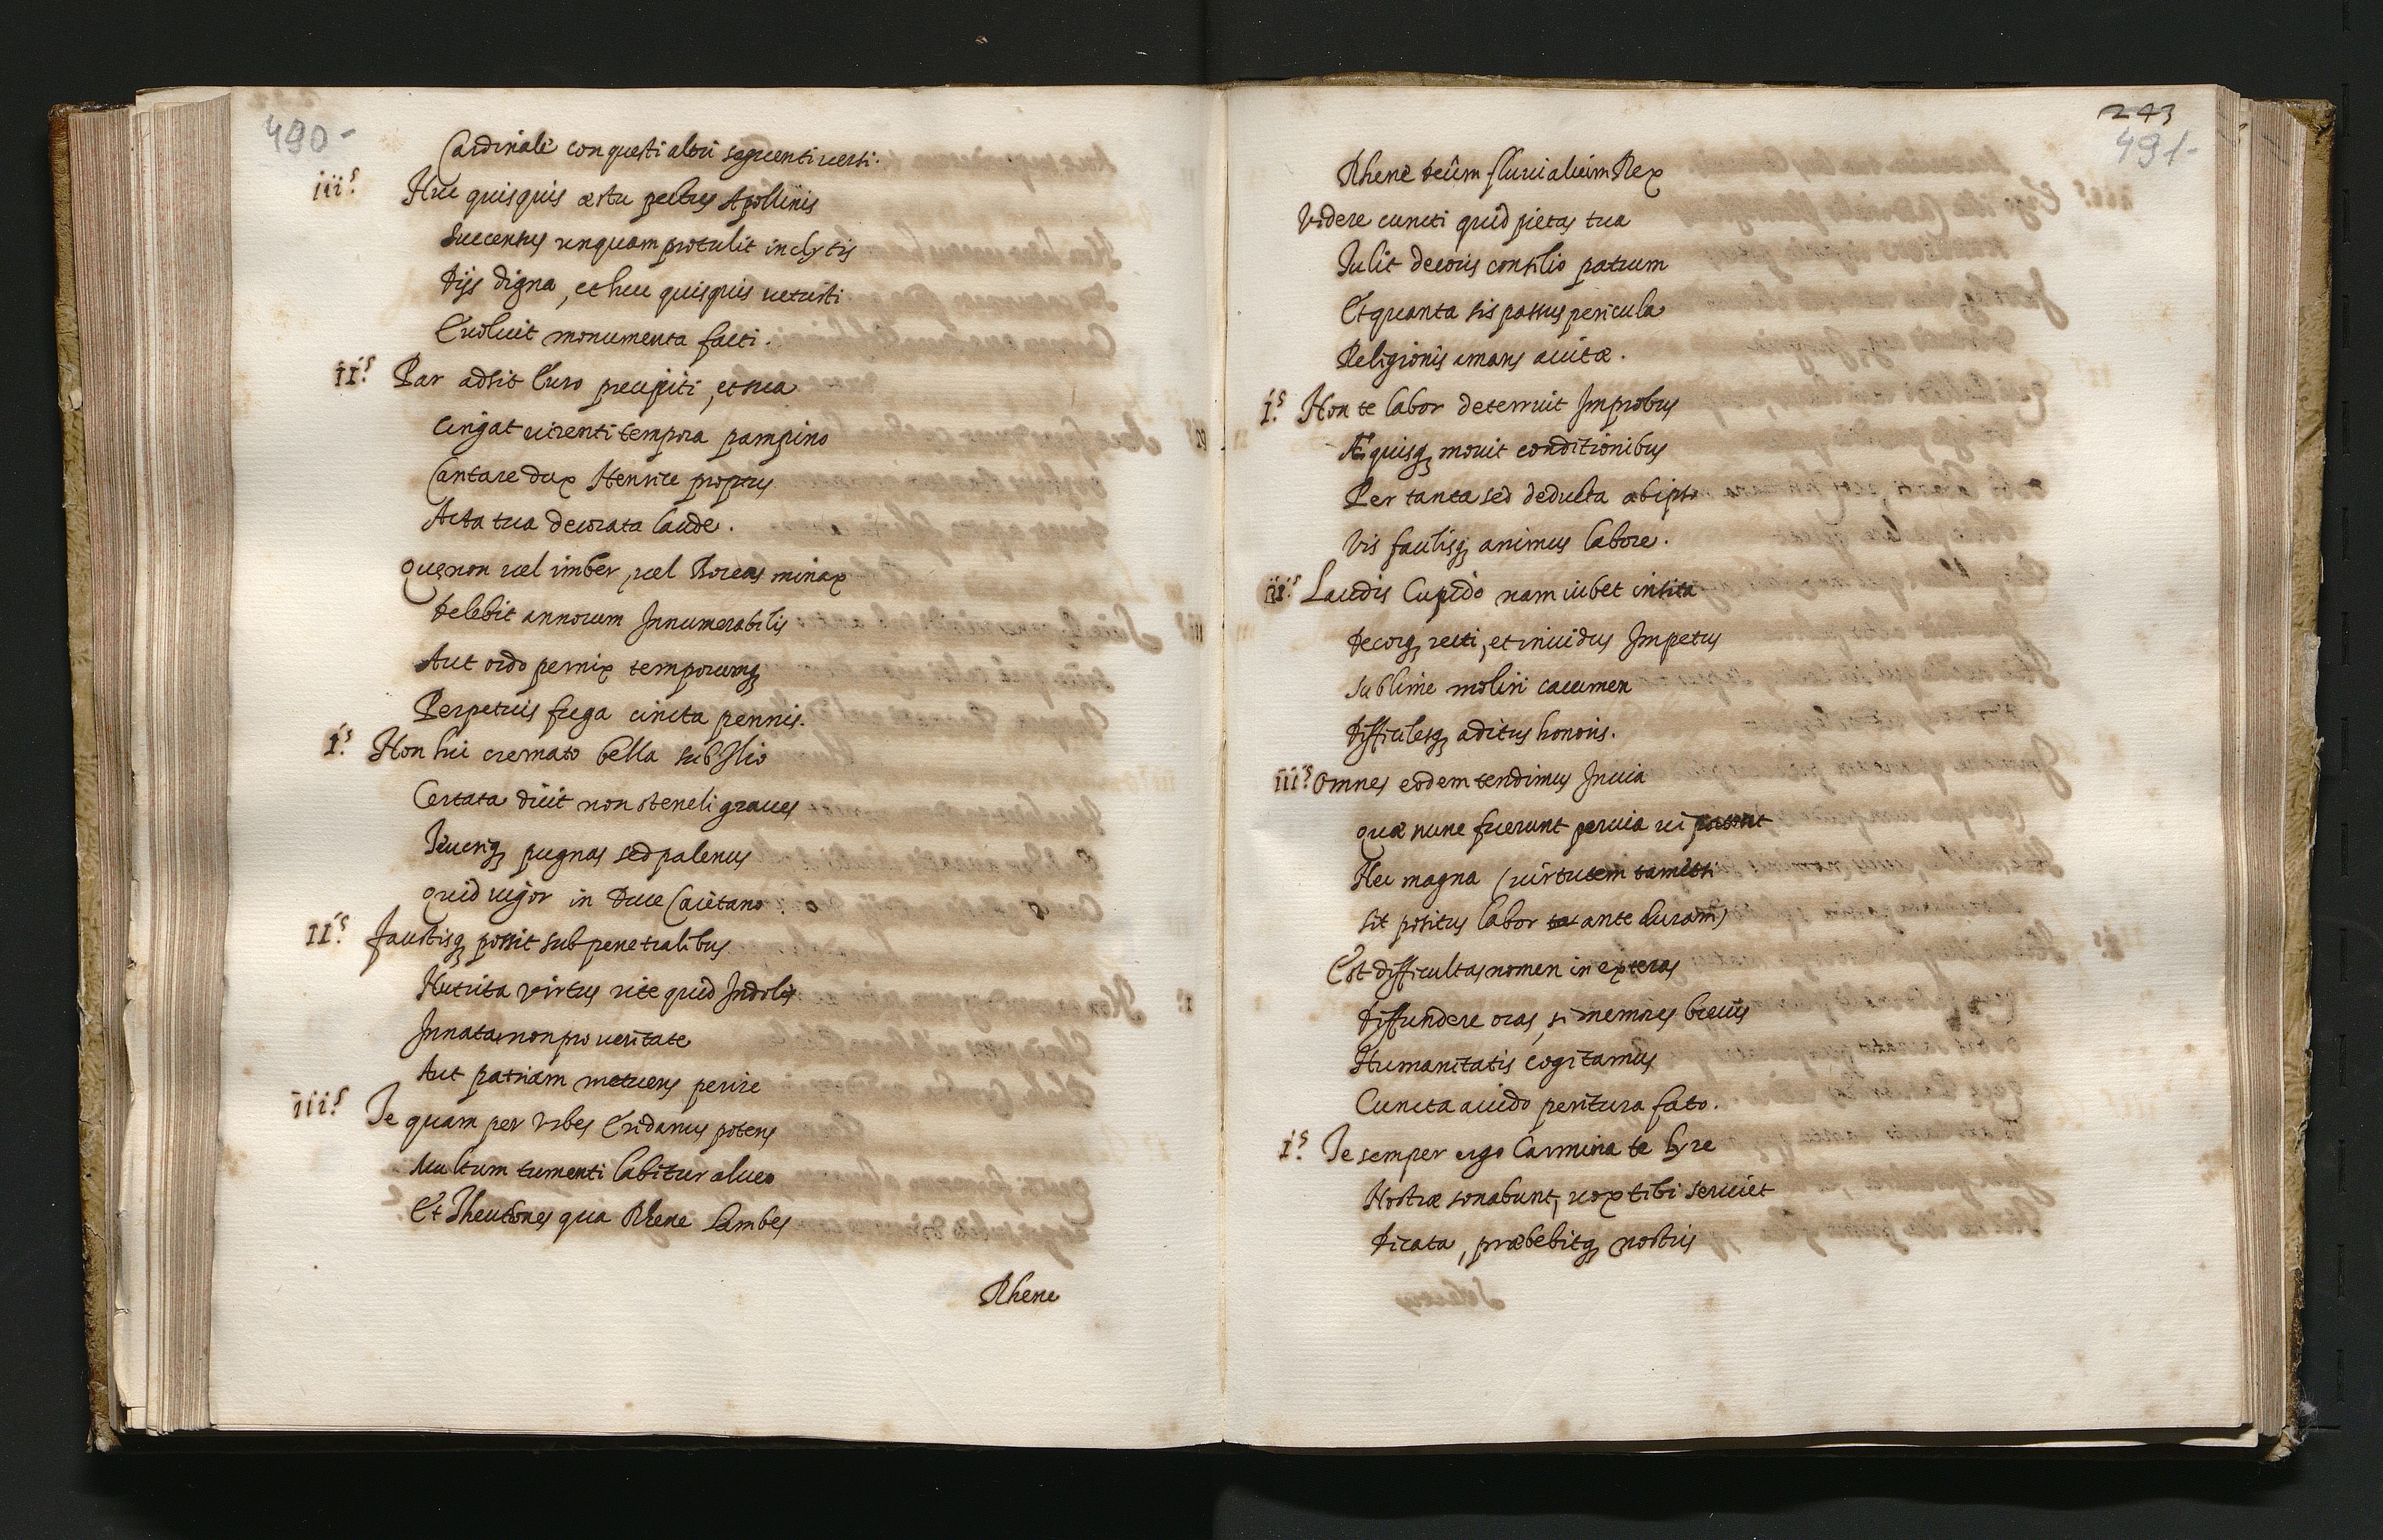 490-
Cardinale con questi altri seguenti uersi.
iii.s Huc quisquis æstu pectus Apollinis
Succensus unquam protulit inclytis
Dijs digna, et huc quisquis uetusti
Euoluit monumenta facti.
II.s Par adsit Euro precipiti, et sua
Cingat uirenti tempora pampino
Cantare dux Henrice promptus
Acta tua decorata laude.
Quę non uel imber, uel Boreas minax
Delebit annorum Innumerabilis
Aut ordo pernix temporumq;
Perpetuis fuga cincta pennis.
I.s Non hic cremato bella sub Ilio
Certata dicit non steneli graues
Teucriq; pugnas sed palenus
Quid uigor in Duce Caietano
II.s Faustisq; possit sub penetralibus
Nutrita virtus rite quid Indolis
Innata non pro ueritate
Aut patriam metuens perire
iii.s Te quam per Vrbes Eridanus potens
Multum tumenti labitur alueo
Et Theutones qua Rhene lambes
Rhene
243
491-
Rhene deûm fluuialium Rex
Videre cuncti quid pietas tua
Tulit decoris consilio patrum
Et quanta sis passus pericula
Religionis amans auitæ.
I.s Non te labor deterruit Improbus
Æquisq; mouit conditionibus
Per tanta sed deducta ab ipso
Vis facilisq; animus labore.
II.s Laudis Cupido nam iubet insita
Decorq; recti, et inuidus Impetus
Sublime moliri cacumen
Difficilesq; aditus honoris.
iii.s Omnes eodem tendimus Inuia
Quæ nunc fuerunt peruia ui
Nec magna (uirtutem tametsi
Sit positus labor ante duram)
Est difficultas nomen in exteras
Diffundere oras, si memores breuis
Humanitatis cogitamus
Cuncta auido peritura fato.
I.s Te semper ergo Carmina te lyre
Nostræ sonabunt, uox tibi seruiet
Dicata, præbebitq; nostris